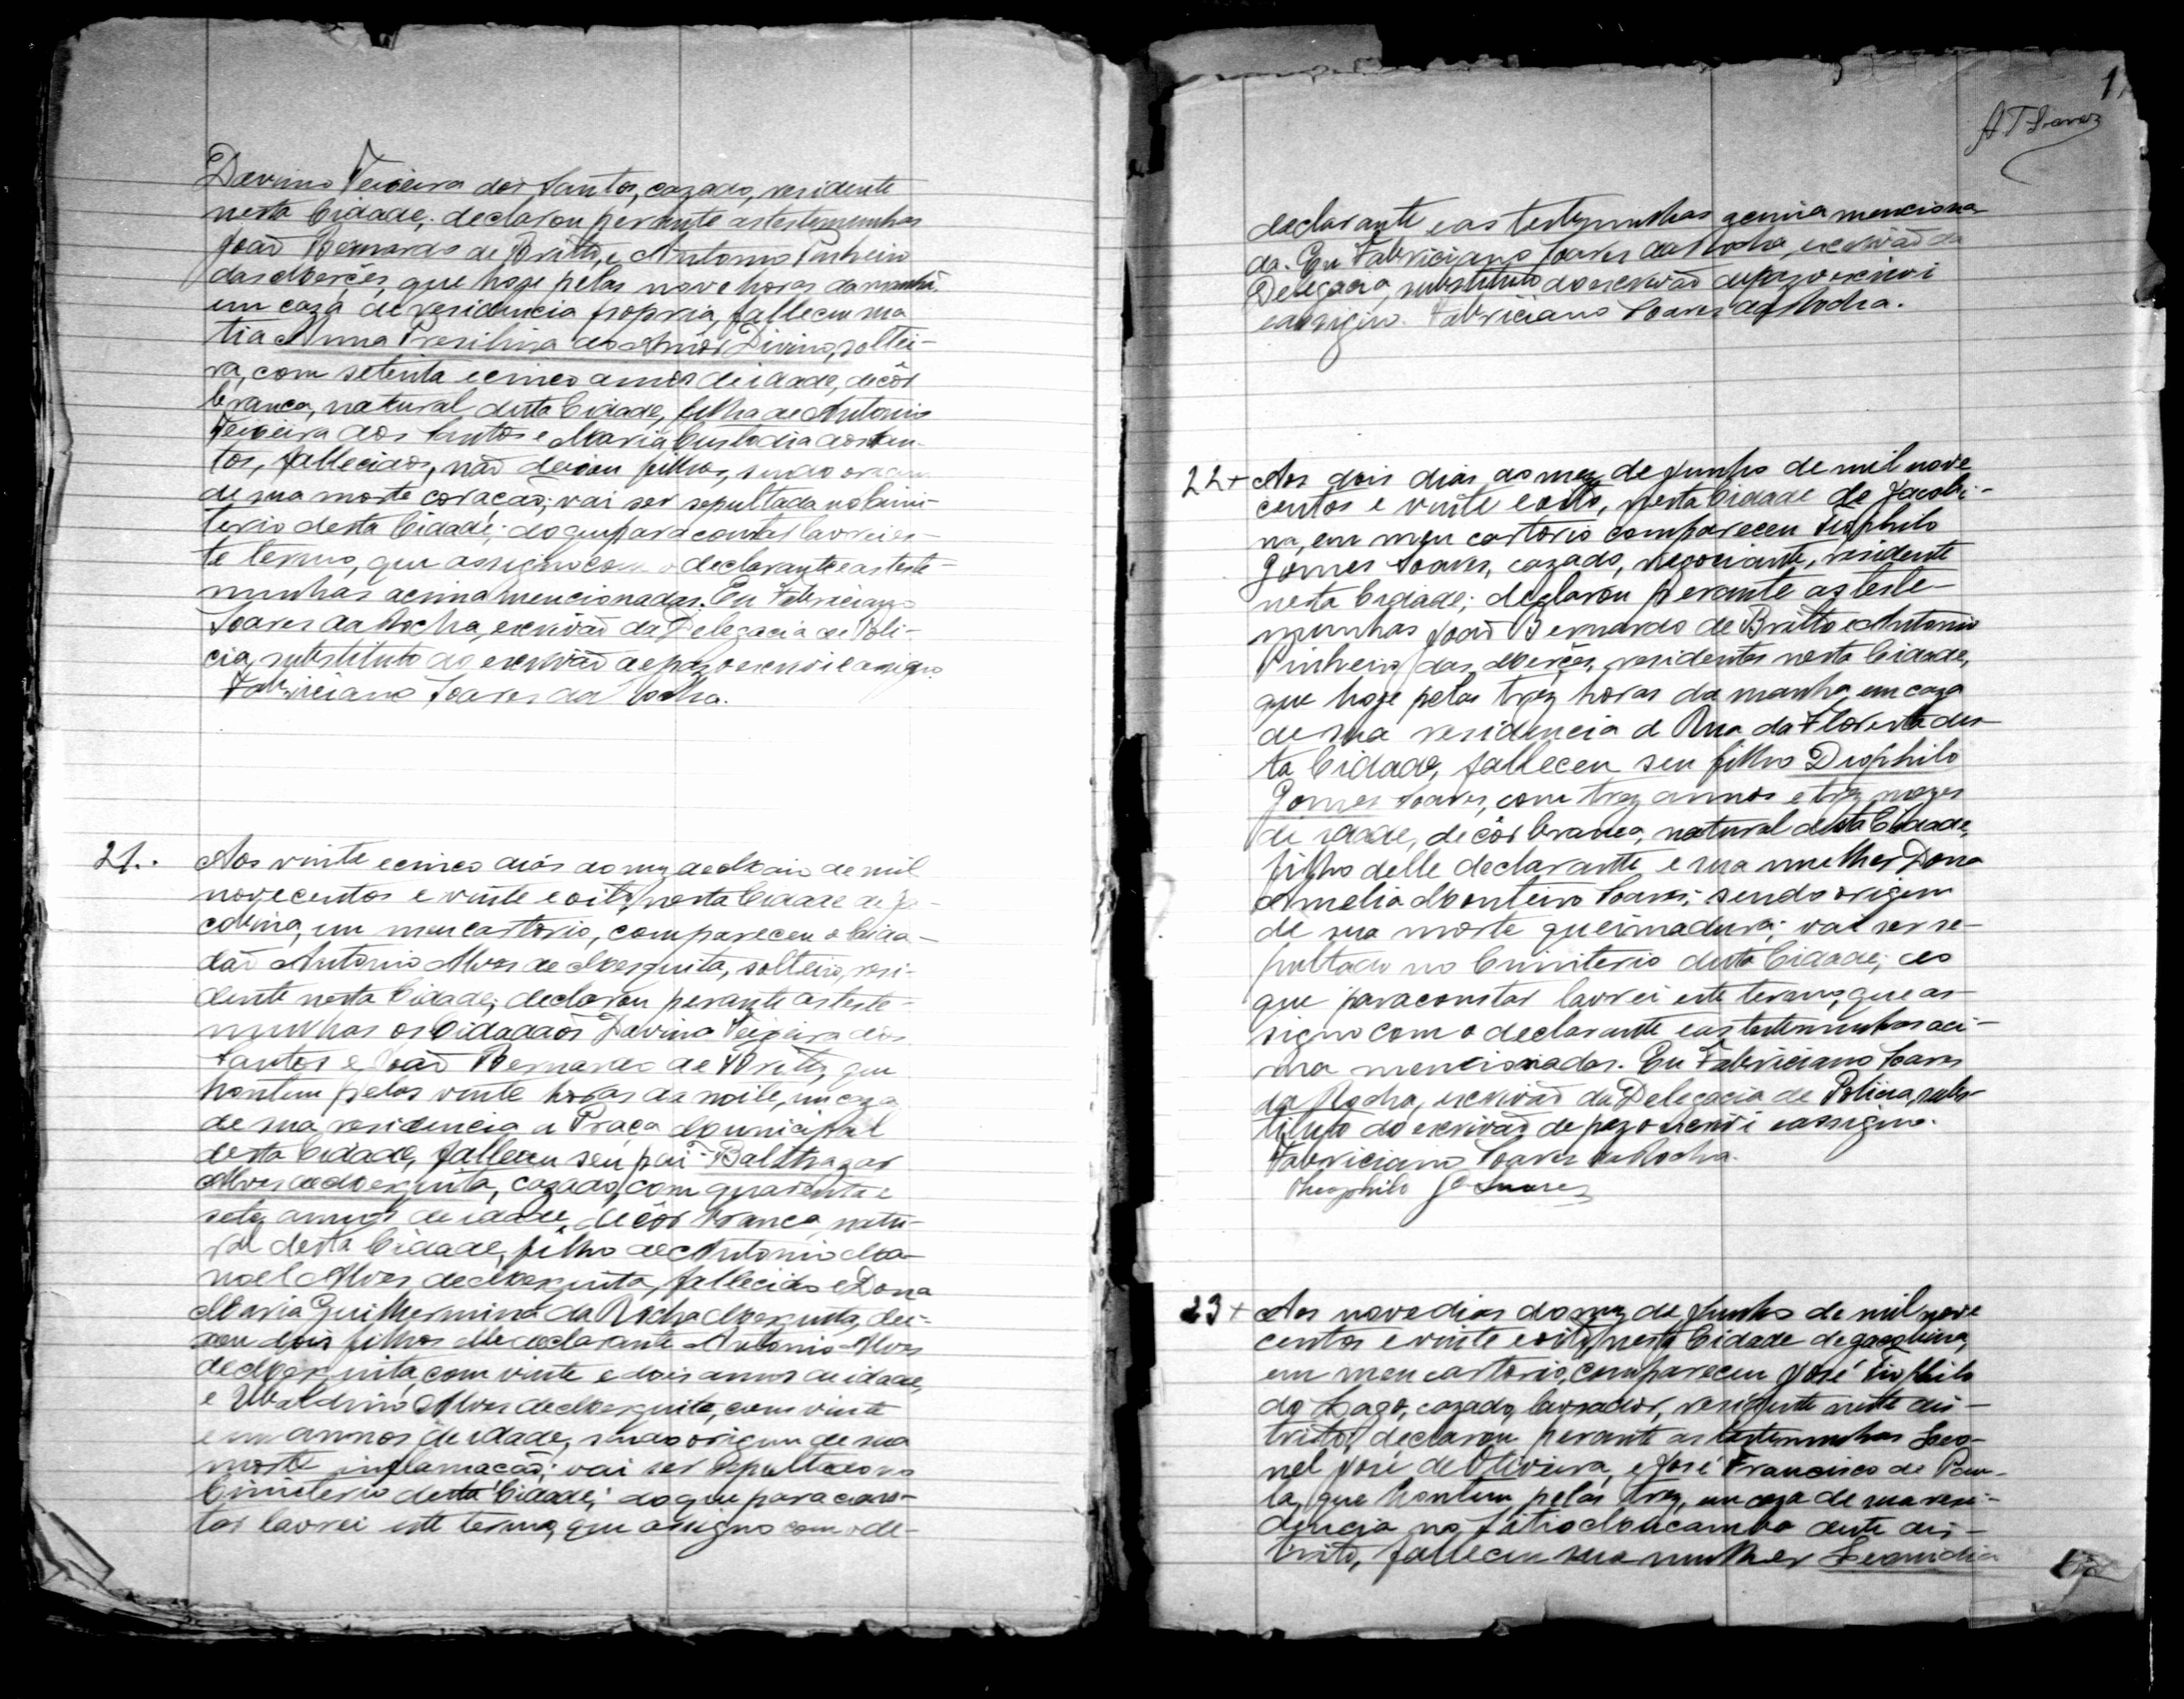 Davino Teixeira dos Santos, cazado, residente
nesta Cidade; declarou perante as testemunhas
João Bernardo de Britto, e Antonio Pinheiro
das Mercês, que hoje pelas nove horas da manhã,
em caza de residencia propria, falleceu sua
tia Anna Presilina do Amôr Divino, soltei-
ra, com setenta e cinco annos de idade, de côr
branca, natural desta Cidade, filha de Antonio
Teixeira dos Santos e Maria Custodia dos San-
tos, fallecidos, não deixou filhos, sendo origem
de sua morte coração; vai ser sepultada no Cimi-
terio desta Cidade; do que para constar lavrei es-
te termo, que assigno com o declarante e as teste-
munhas acima mencionadas. Eu Fabriciano
Soares da Rocha, escrivão da Delegacia de Poli-
cia, substituto do escrivão de paz o escrevi e assigno.
Fabriciano Soares da Rocha.
21. Aos vinte e cinco dias do mez de Maio de mil
novecentos e vinte e oito, nesta Cidade de Ja-
cobina, em meu cartorio, compareceu o Cida-
dão Antonio Alves de Mesquita, solteiro, resi-
dente nesta Cidade; declarou perante as teste-
munhas os Cidadãos Davino Teixeira dos
Santos e João Bernardo de Britto, que
hontem pelas vinte horas da noite, em caza
de sua residencia a Praça Municipal
desta Cidade, falleceu seu pai Balthazar
Alves de Mesquita, cazado, com quarenta e
sete annos de idade, de côr branca, natu-
ral desta Cidade, filho de Antonio Ma-
noel Alves de Mesquita, fallecido e Dona
Maria Guilhermina da Rocha Mesquita, dei-
xou dois filhos elle declarante Antonio Alves
de Mesquita, com vinte e dois annos de idade,
e Ubaldino Alves de Mesquita, com vinte
e um annos de idade, sendo origem de sua
morte inflamação; vai ser sepultado no
Cimiterio desta Cidade; do que para cons-
tar lavrei este termo, que assigno com o de-
1
A T Soares
declarante e as testemunhas acima menciona-
da. Eu Fabriciano Soares da Rocha, escrivão da
Delegacia, substituto do escrivão de paz o escrevi
e assigno. Fabriciano Soares da Rocha.
22+ Aos dois dias do mez de Junho de mil nove
centos e vinte e oito, nesta Cidade de Jacobi-
na, em meu cartorio compareceu Teophilo
Gomes Soares, cazado, negociante, residente
nesta Cidade; declarou perante as teste-
munhas João Bernardo de Britto e Antonio
Pinheiro das Mercês, residentes nesta Cidade,
que hoje pelas trez horas da manhã, em caza
de sua residencia á Rua da Floresta des-
ta Cidade, falleceu seu filho Deophilo
Gomes Soares, com trez annos e trez mezes
de idade, de côr branca, natural desta Cidade,
filho delle declarante e sua mulher Dona
Amelia Monteiro Soares; sendo origem
de sua morte queimadura; vai ser se-
pultado no Cimiterio desta Cidade; do
que para constar lavrei este termo, que as-
signo com o declarante e as testemunhas aci-
ma mencionadas. Eu Fabriciano Soares
da Rocha, escrivão da Delegacia de Policia, subs-
tituto do escrivão de paz o escrevi e assigno.
Fabriciano Soares da Rocha.
Theophilo G Soares
23+ Aos nove dias do mez de Junho de mil nove
centos e vinte e oito, nesta Cidade de Jacobina,
em meu cartorio, compareceu José Tiophilo
do Lago, cazado, lavrador, residente neste dis-
tricto, declarou perante as testemunhas Leo-
nel José de Oliveira, e José Francisco de Pau-
la, que hontem pelas trez, em caza de sua resi-
dencia no Sitio Mocambo deste dis-
tricto, falleceu sua mulher Leonidia